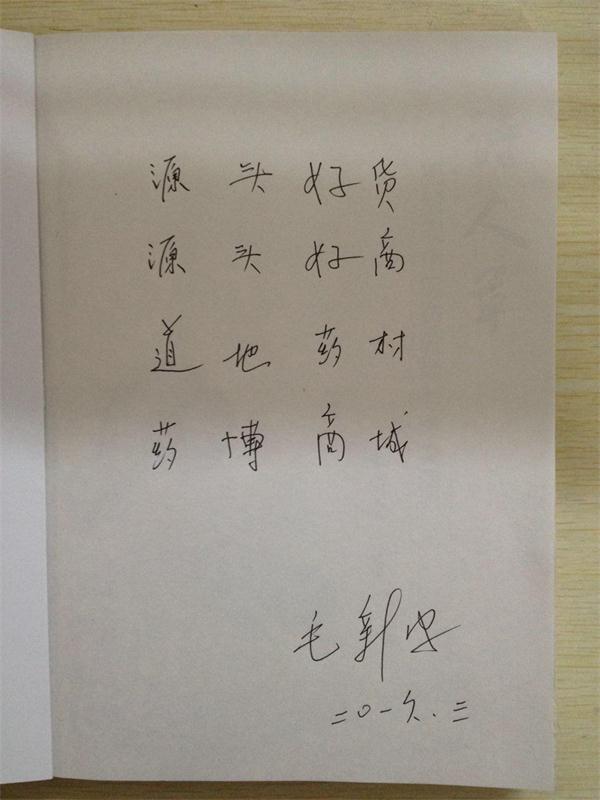 源头好货
源头好商
道地药材
药博商城
毛新宇
二〇一六.三